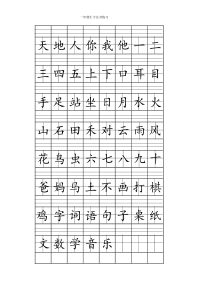 天地人你我他一二
三四五上下口耳目
手足站坐日月水火
山石田禾对云雨风
花鸟虫六七八九十
爸妈马土不画打棋
鸡字词语句子桌纸
文数学音乐